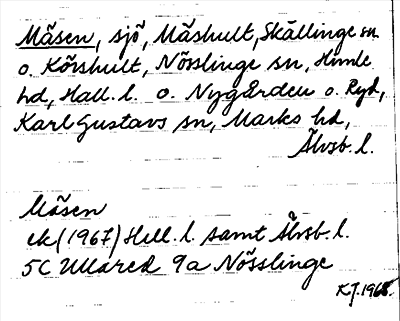 Måsen, sjö, Måshult, Skällinge sn
o. Körshult, Nösslinge sn, Himle
hd, Hall. l. o. Nygården o. Ryd,
Karl Gustavs sn, Marks hd,
Älvsb. l.
Måsen
ek (1967) Hall. l. samt Älvsb. l.
5C Ullared 9a Nösslinge
KJ. 1968.